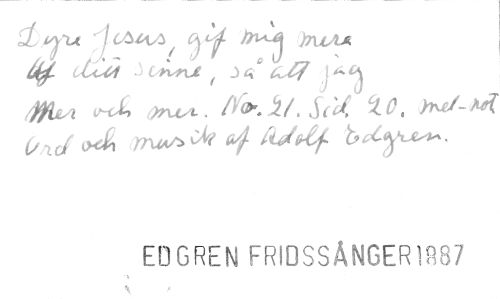 Dyre Jesus, gif mig mera
Af ditt sinne, så att jag
Mer och mer. No. 21. Sid. 20. mel-not
Ord och musik af Adolf Edgren.
EDGREN FRIDSSÅNGER 1887